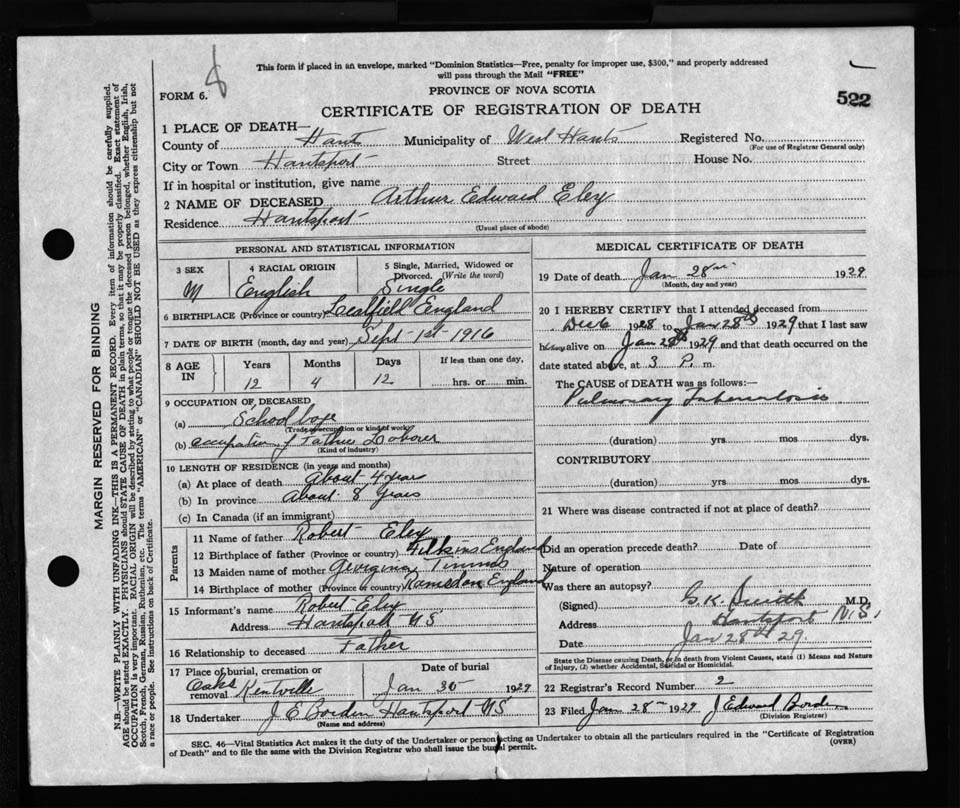 This form if placed in an envelope, marked "Dominion Statistics—Free, penalty for improper use, $300," and properly addressed
will pass through the Mail "FREE"
FORM 6.
PROVINCE OF NOVA SCOTIA
522
CERTIFICATE OF REGISTRATION OF DEATH
1 PLACE OF DEATH—
County of Hants Municipality of West Hants Registered No.
(For use of Registrar General only)
City or Town Hantsport Street House No.
If in hospital or institution, give name
2 NAME OF DECEASED Arthur Edward Eley
Residence Hantsport
(Usual place of abode)
PERSONAL AND STATISTICAL INFORMATION
3 SEX 4 RACIAL ORIGIN 5 Single, Married, Widowed or Divorced. (Write the word)
M English Single
6 BIRTHPLACE (Province or country) Leafield England
7 DATE OF BIRTH (month, day and year) Sept 1st 1916
8 AGE IN Years Months Days If less than one day,
12 4 12 hrs. or min.
9 OCCUPATION OF DECEASED
(a) School boye
(Trade occupation or kind of work)
(b) occupation of Father Laborer
(Kind of industry)
10 LENGTH OF RESIDENCE (in years and months)
(a) At place of death About 4 year
(b) In province About 8 years
(c) In Canada (if an immigrant)
Parents
11 Name of father Robert Eley
12 Birthplace of father (Province or country) Filkins England
13 Maiden name of mother Georgina Timms
14 Birthplace of mother (Province or country) Ramsden England
15 Informant's name Robert Eley
Address Hantsport N S
16 Relationship to deceased Father
17 Place of burial, cremation or removal Oaks Kentville
Date of burial Jan 30 1929
18 Undertaker J E Borden Hantsport N S
(Name and address)
MEDICAL CERTIFICATE OF DEATH
19 Date of death Jan 28th 1929
(Month, day and year)
20 I HEREBY CERTIFY that I attended deceased from
Dec 6 1928 to Jan 28th 1929 that I last saw
him alive on Jan 28th 1929 and that death occurred on the
date stated above, at 3 P. m.
The CAUSE of DEATH was as follows:
Pulmonary Tuberculosis
(duration) yrs mos dys.
CONTRIBUTORY
(duration) yrs mos dys.
21 Where was disease contracted if not at place of death?
Did an operation precede death? Date of
Nature of operation
Was there an autopsy?
(Signed) G. K. Smith M.D.
Address Hantsport N.S.
Date Jan 28th 29.
State the Disease causing Death, or in death from Violent Causes, state (1) Means and Nature
of Injury, (2) whether Accidental, Suicidal or Homicidal.
22 Registrar's Record Number 2
23 Filed Jan 28th 1929 J Edward Borden
(Division Registrar)
SEC. 46—Vital Statistics Act makes it the duty of the Undertaker or person acting as Undertaker to obtain all the particulars required in the "Certificate of Registration
of Death" and to file the same with the Division Registrar who shall issue the burial permit.
(OVER)
MARGIN RESERVED FOR BINDING
N.B.—WRITE PLAINLY WITH UNFADING INK—THIS IS A PERMANENT RECORD. Every item of information should be carefully supplied.
AGE should be stated EXACTLY. PHYSICIANS should STATE CAUSE OF DEATH in plain terms, so that it may be properly classified. Exact statement of
OCCUPATION is very important. RACIAL ORIGIN will be described by stating to what people or tongue the deceased person belonged, whether English, Irish,
Scotch, French, German, Russian, Ruthenian, etc. The terms "AMERICAN" or "CANADIAN" SHOULD NOT BE USED as they express citizenship but not
a race or people. See instructions on back of Certificate.